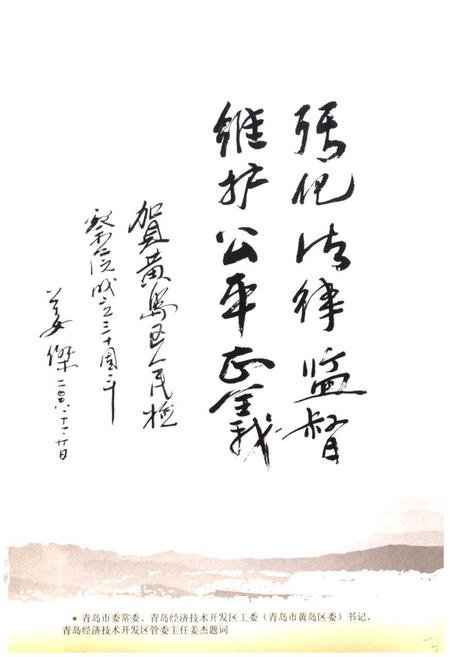 强化法律监督
维护公平正義
贺黄岛区人民检
察院成立三十周年
姜傑 二〇〇八·十一·廿日
• 青岛市委常委、青岛经济技术开发区工委（青岛市黄岛区委）书记、
青岛经济技术开发区管委主任姜杰题词